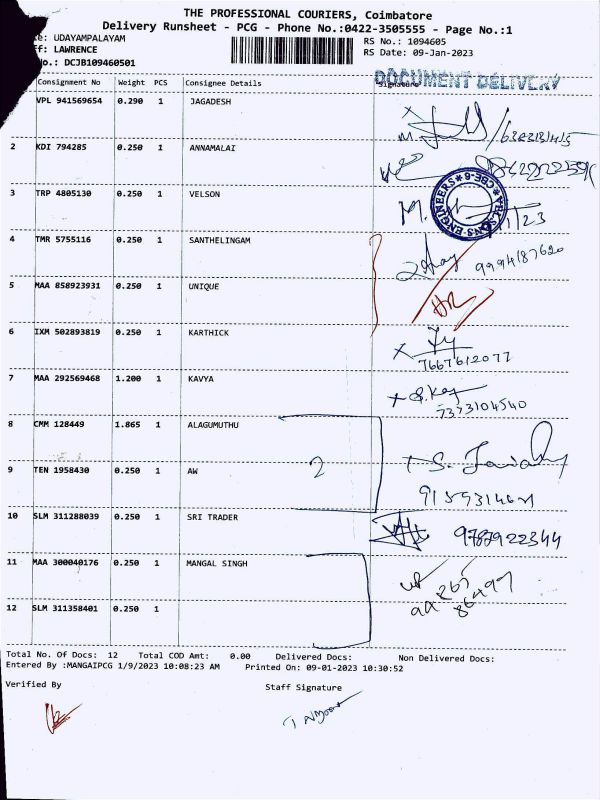 THE PROFESSIONAL COURIERS, Coimbatore
Delivery Runsheet - PCG - Phone No.:0422-3505555 - Page No.:1
e: UDAYAMPALAYAM
RS No.: 1094605
f: LAWRENCE
RS Date: 09-Jan-2023
o.: DCJB109460501
DOCUMENT DELIVERY
Consignment No Weight PCS Consignee Details Signature
VPL 941569654 0.290 1 JAGADESH
2 KDI 794285 0.250 1 ANNAMALAI
3 TRP 4805130 0.250 1 VELSON
4 TMR 5755116 0.250 1 SANTHELINGAM 9994187620
5 MAA 858923931 0.250 1 UNIQUE
6 IXM 502893819 0.250 1 KARTHICK
7667612077
7 MAA 292569468 1.200 1 KAVYA
7373104540
8 CMM 128449 1.865 1 ALAGUMUTHU
9 TEN 1958430 0.250 1 AW 2
10 SLM 311288039 0.250 1 SRI TRADER 9787922344
11 MAA 300040176 0.250 1 MANGAL SINGH
12 SLM 311358401 0.250 1
Total No. Of Docs: 12 Total COD Amt: 0.00 Delivered Docs: Non Delivered Docs:
Entered By :MANGAIPCG 1/9/2023 10:08:23 AM Printed On: 09-01-2023 10:30:52
Verified By Staff Signature